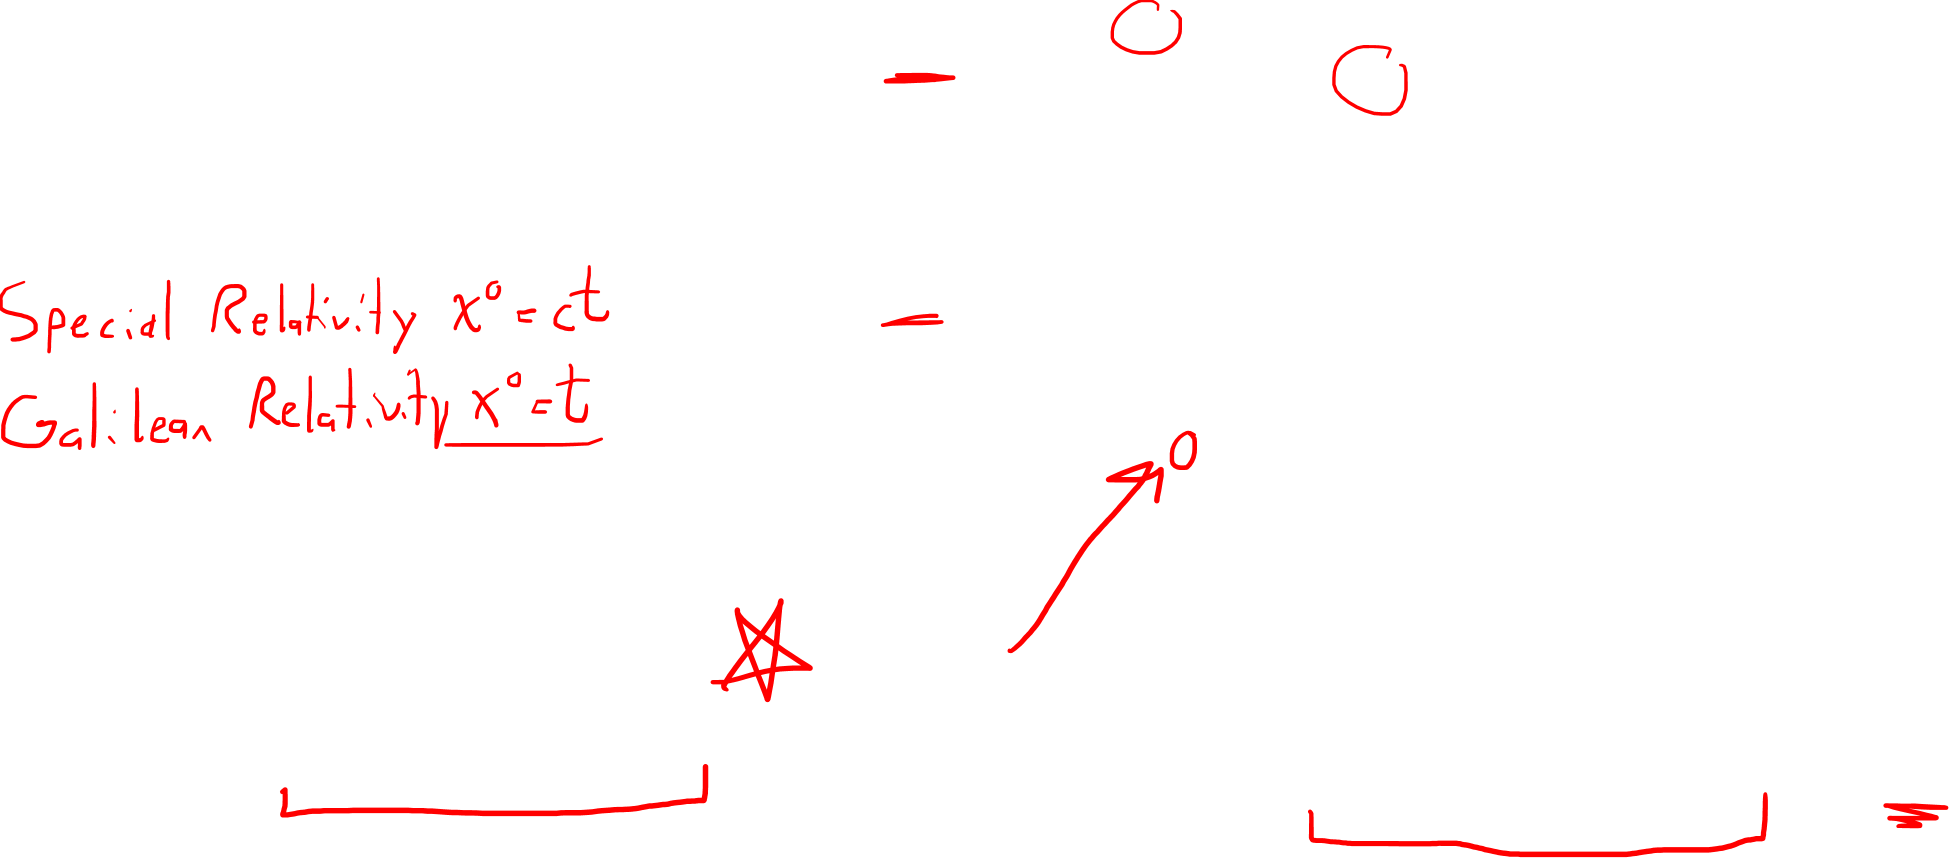 Special Relativity x⁰ = ct
Galilean Relativity x⁰ = t
0